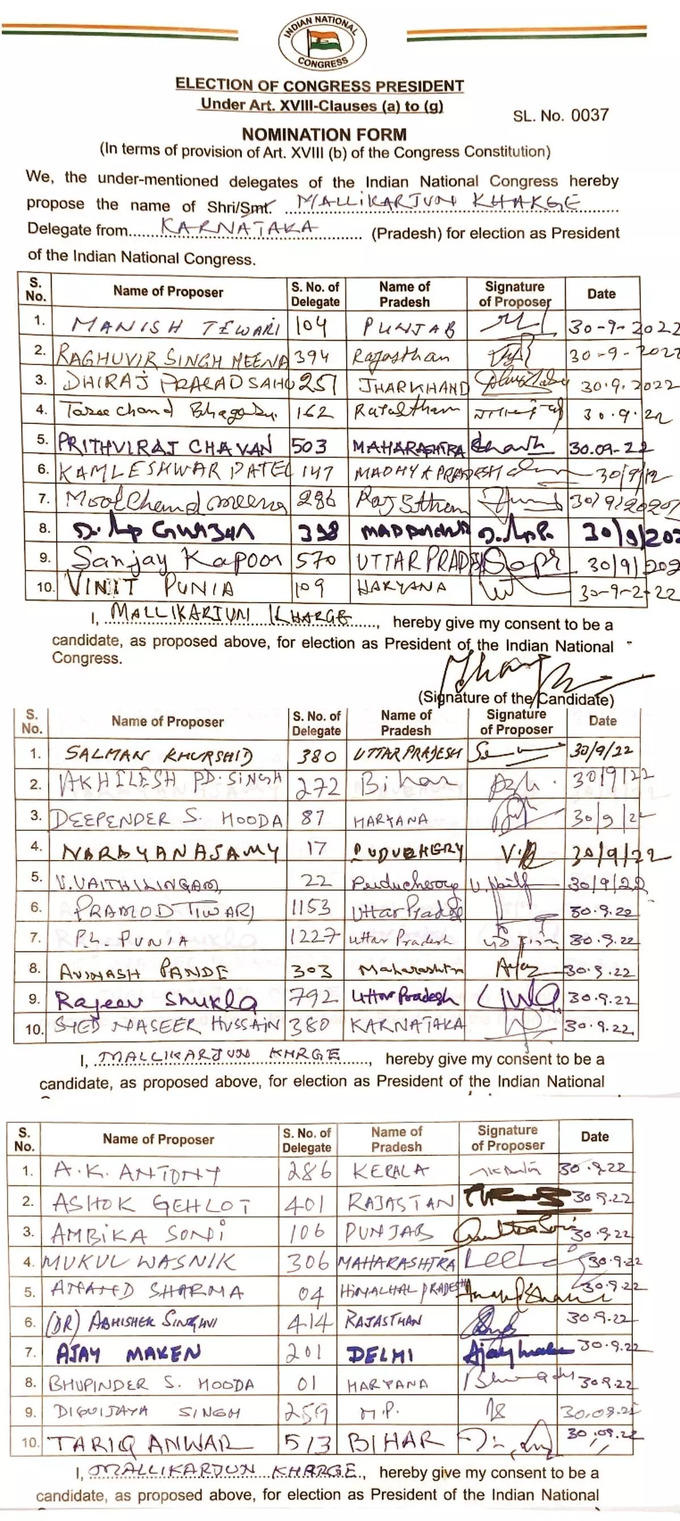 INDIAN NATIONAL
CONGRESS
ELECTION OF CONGRESS PRESIDENT
Under Art. XVIII-Clauses (a) to (g)
SL. No. 0037
NOMINATION FORM
(In terms of provision of Art. XVIII (b) of the Congress Constitution)
We, the under-mentioned delegates of the Indian National Congress hereby
propose the name of Shri/Smt. MALLIKARJUN KHARGE
Delegate from KARNATAKA (Pradesh) for election as President
of the Indian National Congress.
S. No. Name of Proposer S. No. of Delegate Name of Pradesh Signature of Proposer Date
1. MANISH TEWARI 104 PUNJAB 30-9-2022
2. RAGHUVIR SINGH MEENA 394 Rajasthan 30-9-2022
3. DHIRAJ PRASAD SAHU 251 JHARKHAND 30.9.2022
4. Tarachand 162 30.9.22
5. PRITHVIRAJ CHAVAN 503 MAHARASHTRA 30.09-22
6. KAMLESHWAR PATEL 147 MADHYA PRADESH
7. Moolchand meena 286 30/9/
8. 398 30/9/202
9. Sanjay Kapoor 570 UTTAR PRADESH 30/9/202
10. VINIT PUNIA 109 HARYANA 30-9-2-22
I, MALLIKARJUN KHARGE, hereby give my consent to be a
candidate, as proposed above, for election as President of the Indian National
Congress.
(Signature of the Candidate)
S. No. Name of Proposer S. No. of Delegate Name of Pradesh Signature of Proposer Date
1. SALMAN KHURSHID 380 UTTAR PRADESH 30/9/22
2. AKHILESH PD. SINGH 272 Bihar 30/9/22
3. DEEPENDER S. HOODA 87 HARYANA 30/9/22
4. NARAYANASAMY 17 PUDUCHERY 30/9/22
5. V. VAITHILINGAM 22 Puducherry 30/9/22
6. PRAMOD TIWARI 1153 Uttar Pradesh 30.9.22
7. P.L. PUNIA 1227 Uttar Pradesh 30.9.22
8. AVINASH PANDE 303 Maharashtra 30.9.22
9. Rajeev Shukla 792 Uttar Pradesh 30.9.22
10. SYED NASEER HUSSAIN 380 KARNATAKA 30.9.22
I, MALLIKARJUN KHRGE, hereby give my consent to be a
candidate, as proposed above, for election as President of the Indian National
S. No. Name of Proposer S. No. of Delegate Name of Pradesh Signature of Proposer Date
1. A.K. ANTONY 286 KERALA 30.9.22
2. ASHOK GEHLOT 401 RAJASTAN 30.9.22
3. AMBIKA SONI 106 PUNJAB 30.9.22
4. MUKUL WASNIK 306 MAHARASHTRA 30.9.22
5. ANAND SHARMA 04 HIMALHAL PRADESH 30.9.22
6. (DR) ABHISHEK SINGHVI 414 RAJASTHAN 30.9.22
7. AJAY MAKEN 201 DELHI Ajay Maken 30.9.22
8. BHUPINDER S. HOODA 01 HARYANA 30.9.22
9. DIGVIJAYA SINGH 259 M.P. 30.09.22
10. TARIQ ANWAR 513 BIHAR 30.09.22
I, MALLIKARJUN KHARGE, hereby give my consent to be a
candidate, as proposed above, for election as President of the Indian National